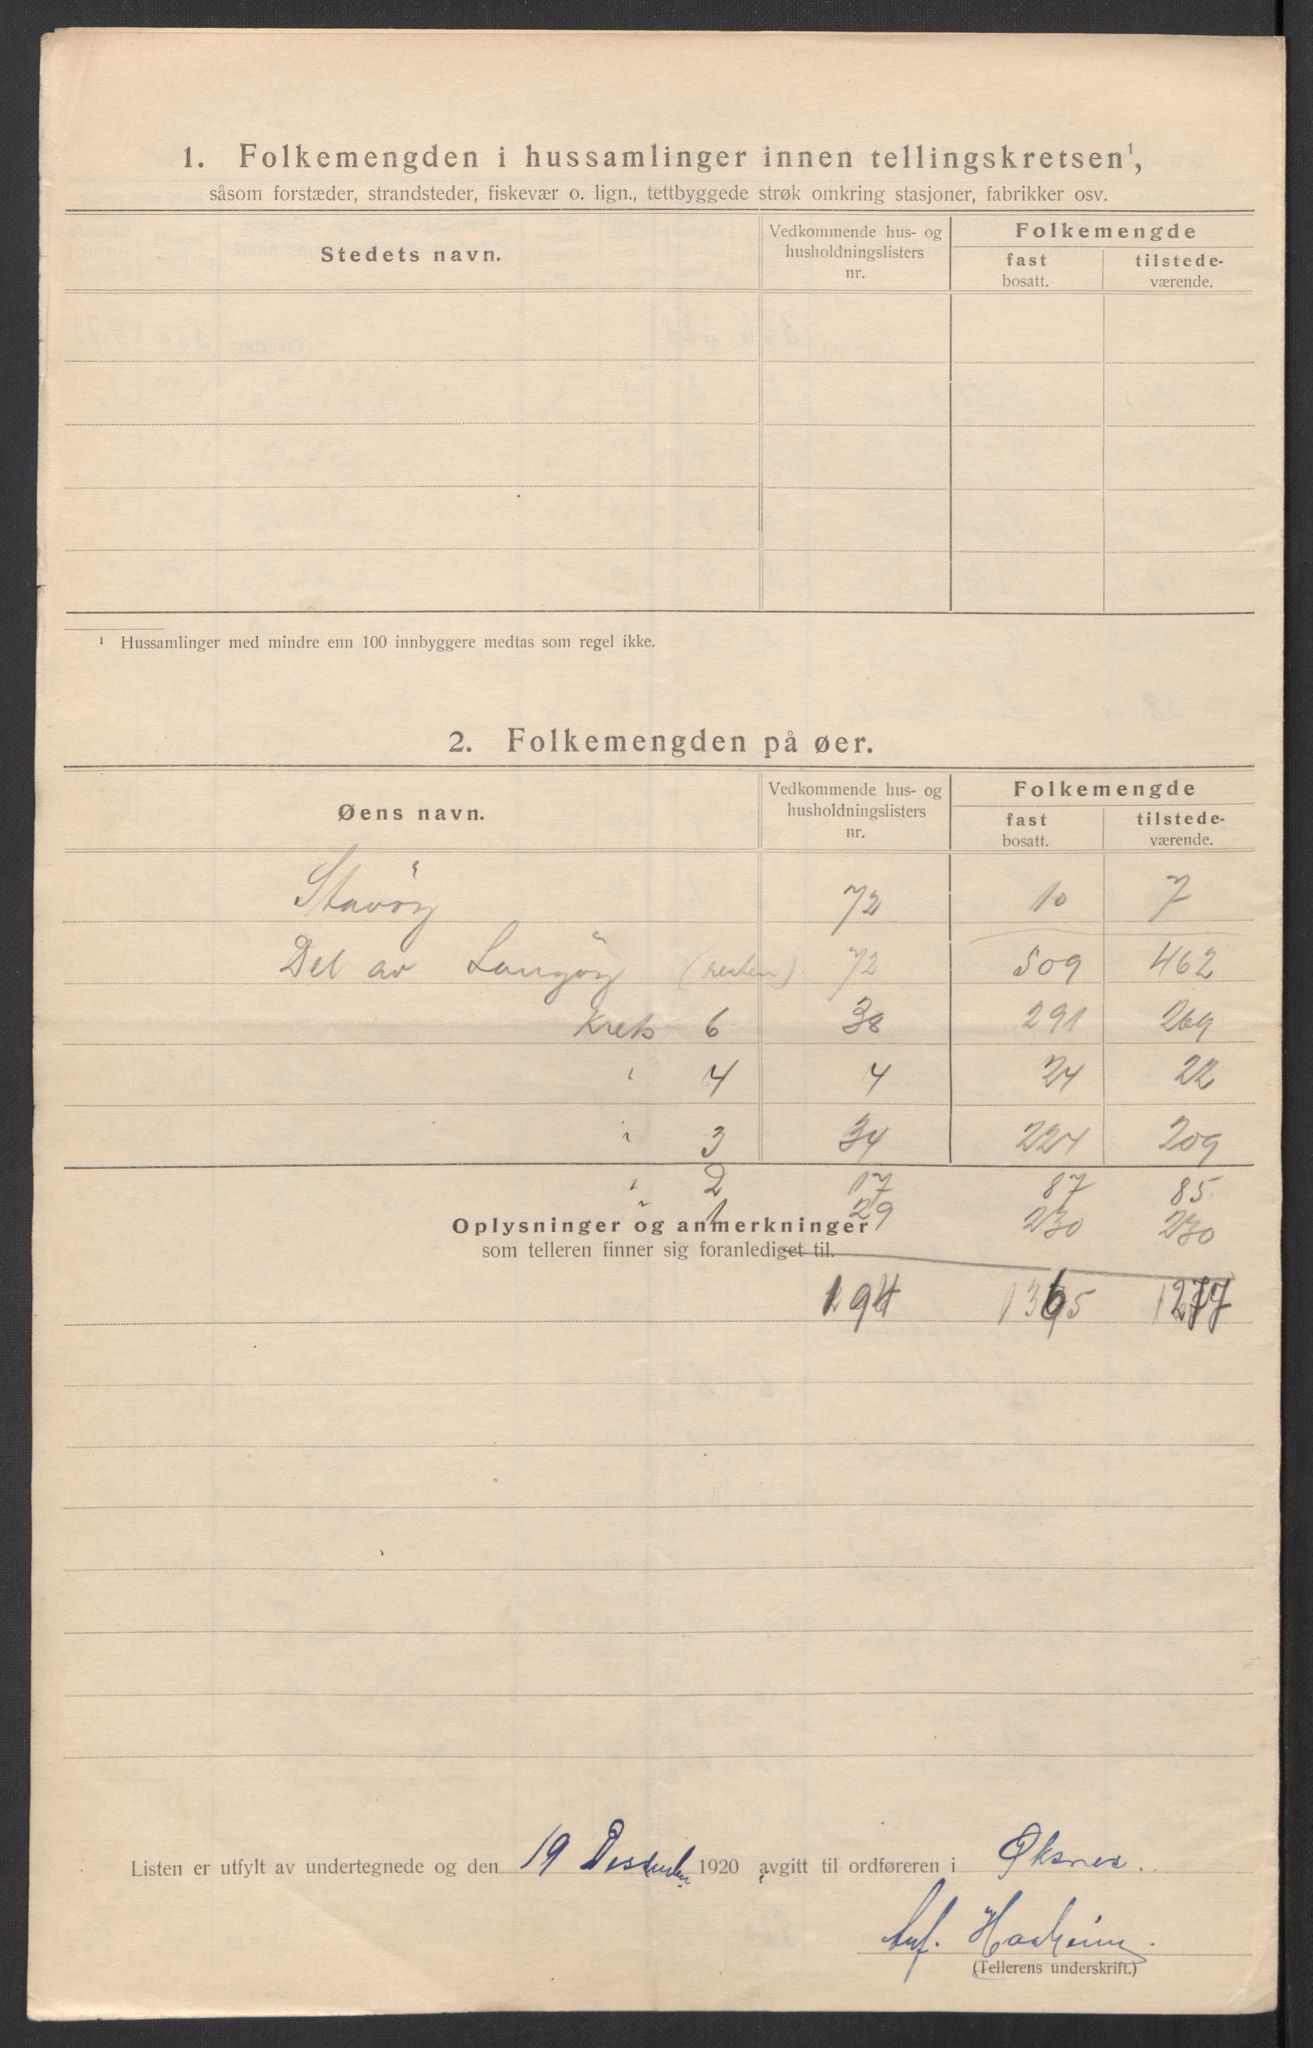 1. Folkemengden i hussamlinger innen tellingskretsen¹,
såsom forstæder, strandsteder, fiskevær o. lign., tettbyggede strøk omkring stasjoner, fabrikker osv.
Stedets navn. Vedkommende hus- og husholdningslisters nr. Folkemengde fast bosatt. tilstede-værende.
¹ Hussamlinger med mindre enn 100 innbyggere medtas som regel ikke.
2. Folkemengden på øer.
Øens navn. Vedkommende hus- og husholdningslisters nr. Folkemengde fast bosatt. tilstede-værende.
Stavöy 72 10 7
Del av Langöy (resten) 72 509 462
Krets 6 38 291 269
" 4 4 24 22
" 3 34 224 209
" 2 17 87 85
" 1 29 230 230
Oplysninger og anmerkninger
som telleren finner sig foranlediget til.
194 1365 1277
Listen er utfylt av undertegnede og den 19 Desember 1920 avgitt til ordføreren i Øksnes.
Haaheim.
(Tellerens underskrift.)